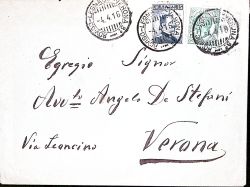 -4.4.16
Egregio Signor
Avv.to Angelo De Stefani
Via Leoncino Verona